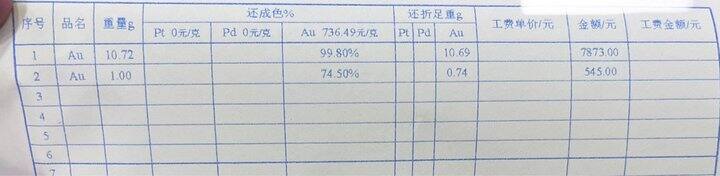 序号 品名 重量g 还成色% 还折足重g 工费单价/元 金额/元 工费金额/元
Pt 0元/克 Pd 0元/克 Au 736.49元/克 Pt Pd Au
1 Au 10.72 99.80% 10.69 7873.00
2 Au 1.00 74.50% 0.74 545.00
3
4
5
6
7